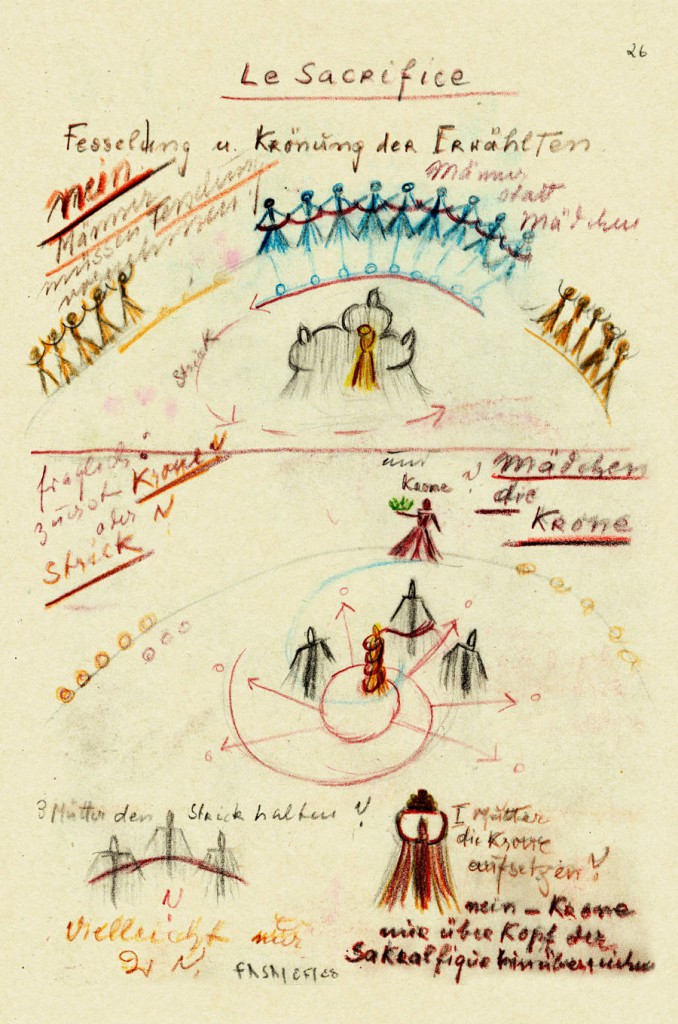 26
Le Sacrifice
Fesselung u. Krönung der Erwählten.
nein.
Männer
müssen Fesselung
vornehmen!
Männer
statt
Mädchen
Strick
fraglich:
zuerst Krone?
oder
Strick?
und
Krone?
Mädchen
die
Krone
3 Mütter den Strick halten?
?
vielleicht nur
2?
I Mütter
die Krone
aufsetzen?
nein – Krone
nur über Kopf der
Sakralfigur hinüberreichen